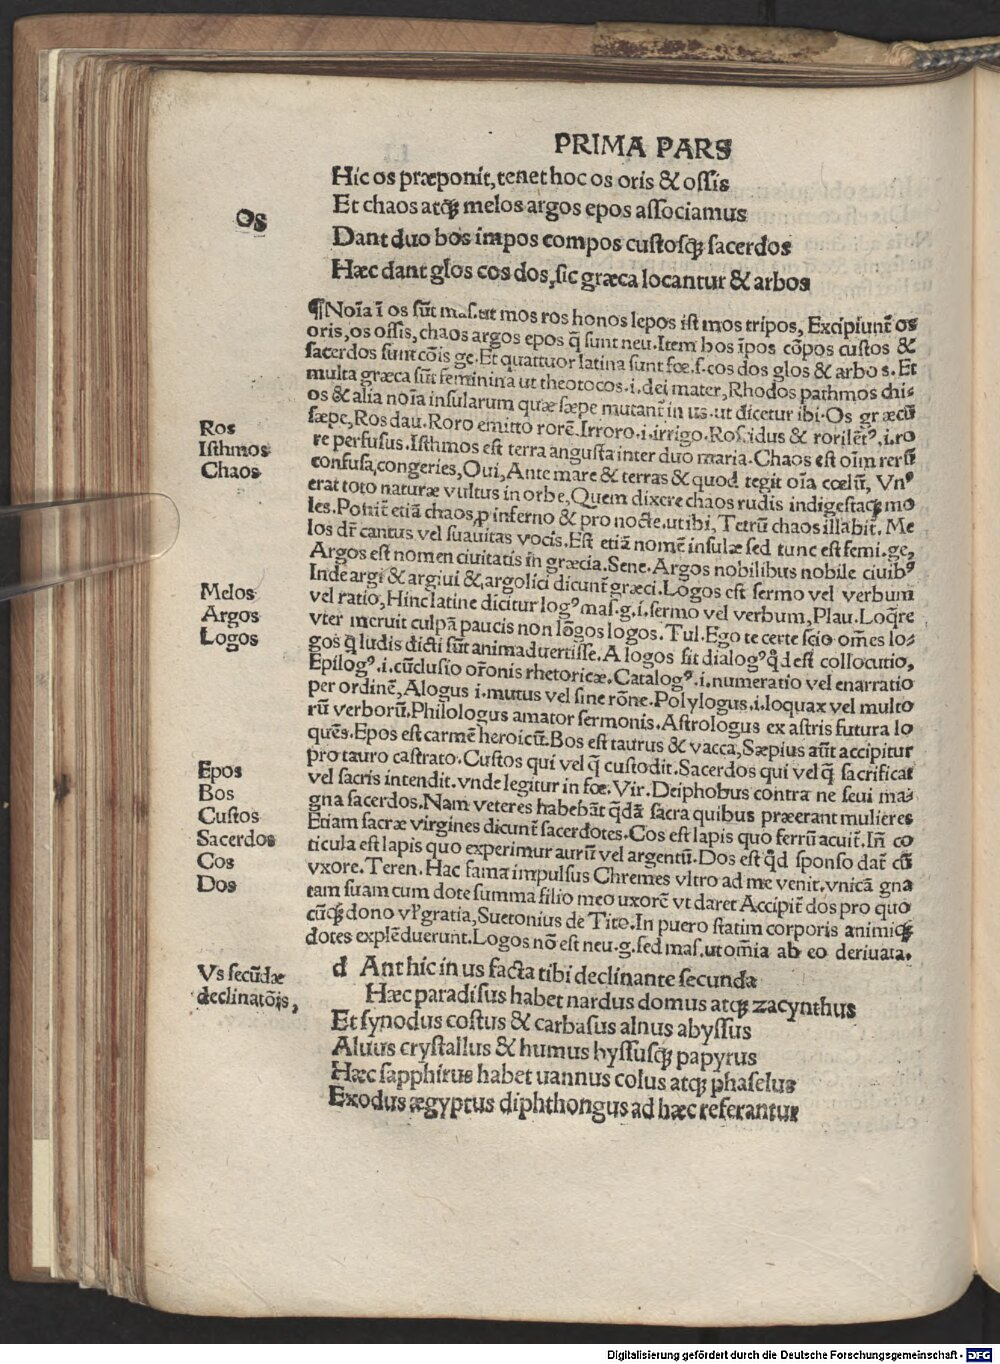 PRIMA PARS
Hic os præponit, tenet hoc os oris & ossis
Os
Et chaos atqꝫ melos argos epos associamus
Dant duo bos impos compos custosqꝫ sacerdos
Hæc dant glos cos dos, sic græca locantur & arbos
¶Noĩa ĩ os sũt mas. ut mos ros honos lepos ist mos tripos, Excipiunt̃ os
oris, os ossis, chaos argos epos q̃ sunt neu. Item bos ĩpos cõpos custos &
sacerdos sunt cõis ge. Et quattuor latina sunt fœ. s. cos dos glos & arbos. Et
multa græca sũt feminina ut theotocos .i. dei mater, Rhodos pathmos chi⸗
os & alia noĩa insularum quæ sæpe mutant̃ in us. ut dicetur ibi. Os græcũ
sæpe, Ros dau. Roro emitto rorẽ. Irroro .i. irrigo. Roscidus & rorilẽtꝰ .i. ro
Ros
re perfusus. Isthmos est terra angusta inter duo maria. Chaos est oĩm rerũ
Isthmos
confusa, congeries, Oui, Ante mare & terras & quod tegit oĩa cœlũ, Vnꝰ
Chaos
erat toto naturæ vultus in orbe, Quem dixere chaos rudis indigestaqꝫ mo
les. Ponit̃ etiã chaos, ꝓ inferno & pro nocte. ut ibi, Tetrũ chaos illabit̃. Me
los dr̃ cantus vel suauitas vocis. Est etiã nomẽ insulæ sed tunc est femi. ge,
Argos est nomen ciuitatis in græcia. Sene. Argos nobilibus nobile ciuibꝰ
Inde argi & argiui & argolici dicunt̃ græci. Logos est sermo vel verbum
Melos
vel ratio, Hinc latine dicitur logꝰ mas. g. i. sermo vel verbum, Plau. Loq̃re
Argos
vter meruit culpã paucis non lõgos logos. Tul. Ego te certe scio om̃es lo⸗
Logos
gos q̃ ludis dicti sũt animaduertisse. A logos fit dialogꝰ qḋ est collocutio,
Epilogꝰ .i. cũclusio or̃onis rhetoricæ. Catalogꝰ .i. numeratio vel enarratio
per ordinẽ, Alogus .i. mutus vel sine rõne. Polylogus .i. loquax vel multo
rũ verborũ. Philologus amator sermonis. Astrologus ex astris futura lo
quẽs. Epos est carmẽ heroicũ. Bos est taurus & vacca, Sæpius aũt accipitur
pro tauro castrato. Custos qui vel q̃ custodit. Sacerdos qui vel q̃ sacrificat
Epos
vel sacris intendit. vnde legitur in fœ. Vir. Deiphobus contra ne seui ma⸗
Bos
gna sacerdos. Nam veteres habebãt qḋã sacra quibus præerant mulieres
Custos
Etiam sacræ virgines dicunt̃ sacerdotes. Cos est lapis quo ferrũ acuit̃. Iñ co
Sacerdos
ticula est lapis quo experimur aurũ vel argentũ. Dos est qḋ sponso dat̃ cũ
Cos
vxore. Teren. Hac fama impulsus Chremes vltro ad me venit. vnicã gna
Dos
tam suam cum dote summa filio meo uxorẽ vt daret Accipit̃ dos pro quo
cũqꝫ dono vl̃ gratia, Suetonius de Tito. In puero statim corporis animiqꝫ
dotes explẽduerunt. Logos nõ est neu. g. sed mas. ut om̃ia ab eo deriuata.
Vs secũdæ
declinatõis,
d Ant hic in us facta tibi declinante secunda
Hæc paradisus habet nardus domus atqꝫ zacynthus
Et synodus costus & carbasus alnus abyssus
Aluus crystallus & humus byssusqꝫ papyrus
Hæc sapphirus habet uannus colus atqꝫ phaselus
Exodus ægyptus diphthongus ad hæc referantur
Digitalisierung gefördert durch die Deutsche Forschungsgemeinschaft - DFG